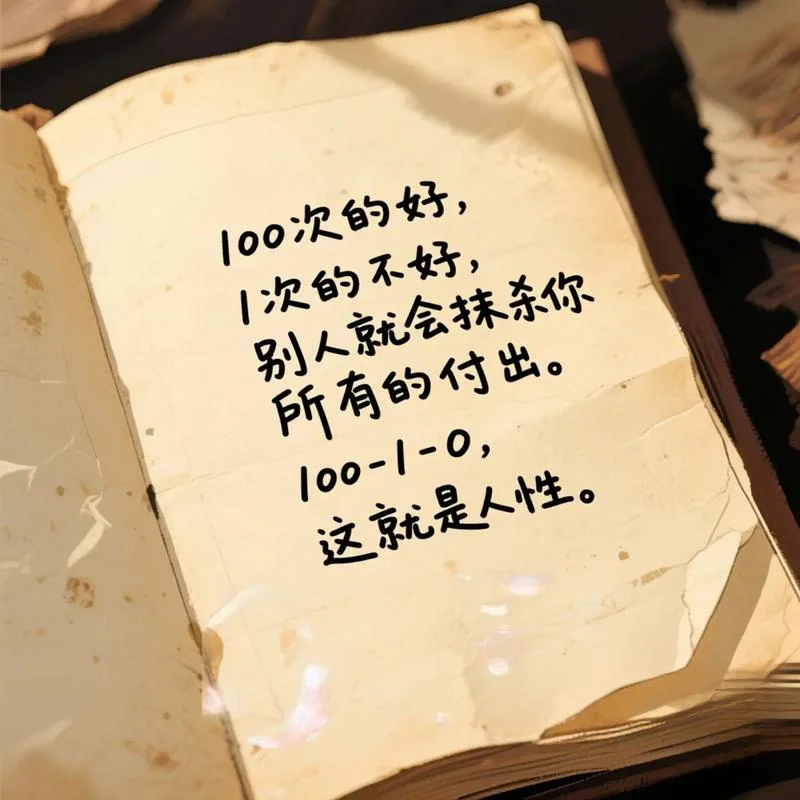 100次的好，
1次的不好，
别人就会抹杀你
所有的付出。
100-1-0，
这就是人性。